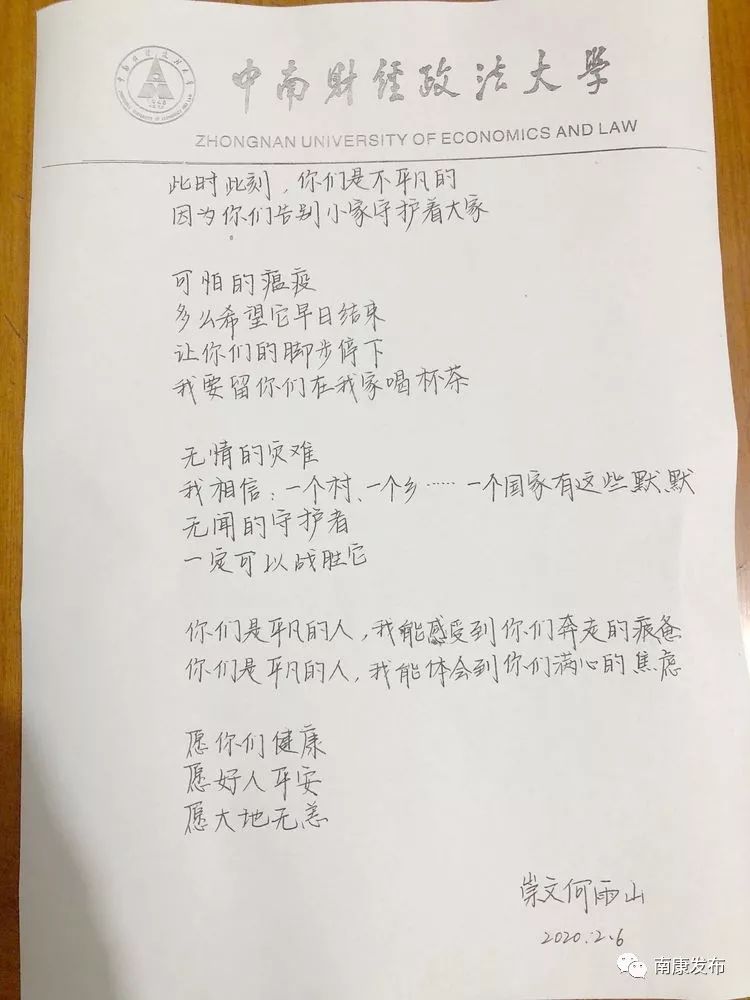 中南财经政法大学
ZHONGNAN UNIVERSITY OF ECONOMICS AND LAW
此时此刻，你们是不平凡的
因为你们告别小家守护着大家
可怕的瘟疫
多么希望它早日结束
让你们的脚步停下
我要留你们在我家喝杯茶
无情的灾难
我相信：一个村、一个乡……一个国家有这些默默
无闻的守护者
一定可以战胜它
你们是平凡的人，我能感受到你们奔走的疲惫
你们是平凡的人，我能体会到你们满心的焦虑
愿你们健康
愿好人平安
愿大地无恙
崇文何雨山
2020.2.6
南康发布